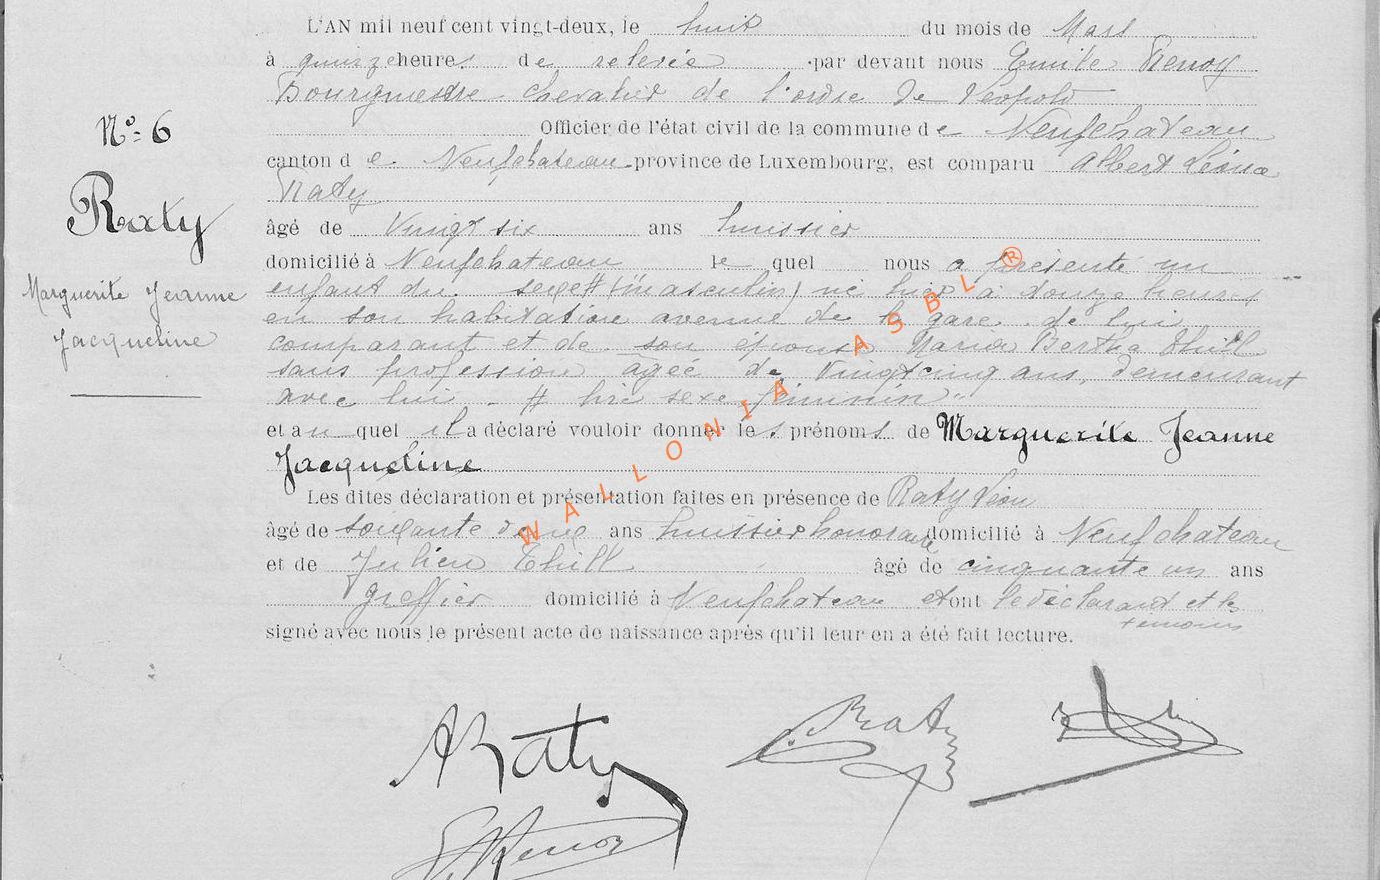 L'AN mil neuf cent vingt-deux, le huit du mois de Mars
à quinze heures de relevée par devant nous Emile Renoy
Bourgmestre Chevalier de l'ordre de Léopold
Officier de l'état civil de la commune de Neufchateau
canton de Neufchateau province de Luxembourg, est comparu Albert
Raty
âgé de Vingt six ans huissier
domicilié à Neufchateau lequel nous a présenté un
enfant du sexe # (masculin) né hier à douze heures
en son habitation avenue de la gare, de lui
comparant et de son épouse Maria Bertha Thill
sans profession âgée de Vingt cinq ans, demeurant
avec lui - # lire sexe "féminin"
et auquel il a déclaré vouloir donner les prénoms de Marguerite Jeanne
Jacqueline
Les dites déclaration et présentation faites en présence de Raty Léon
âgé de soixante ans huissier honoraire domicilié à Neufchateau
et de Julien Thill âgé de cinquante un ans
greffier domicilié à Neufchateau et ont le déclarant et les
témoins
signé avec nous le présent acte de naissance après qu'il leur en a été fait lecture.
No 6
Raty
Marguerite Jeanne
Jacqueline
WALLONIA ASBL ®
A Raty
L. Raty
E. Renoy